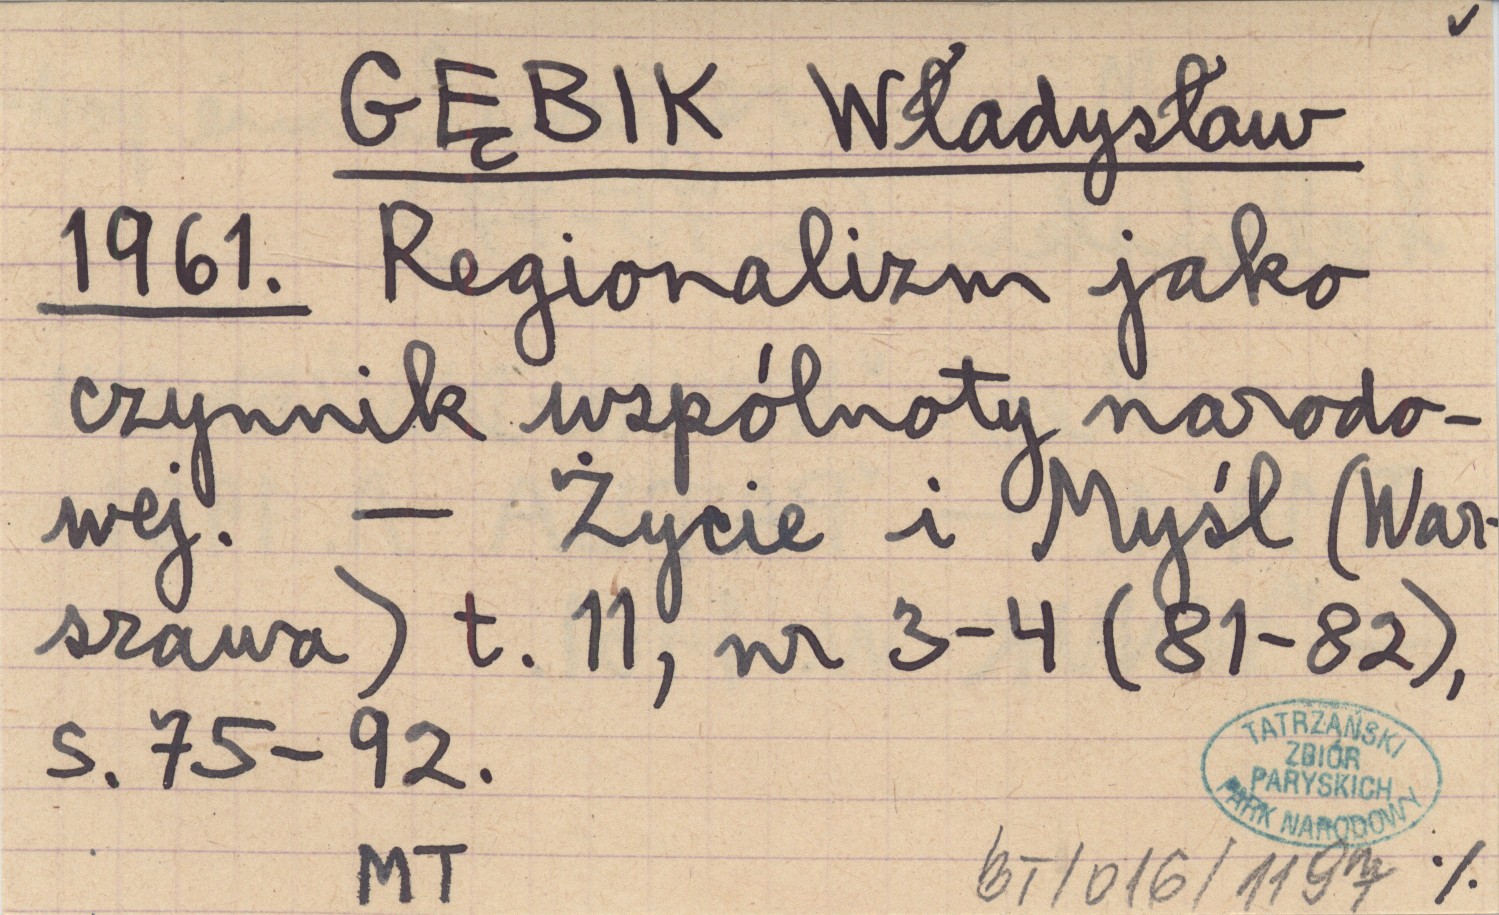 GĘBIK Władysław
1961. Regionalizm jako
czynnik wspólnoty narodo-
wej. — Życie i Myśl (War-
szawa) t. 11, nr 3-4 (81-82),
s. 75-92.
TATRZAŃSKI
ZBIÓR
PARYSKICH
PARK NARODOWY
MT
BT/016/1197 ·/.